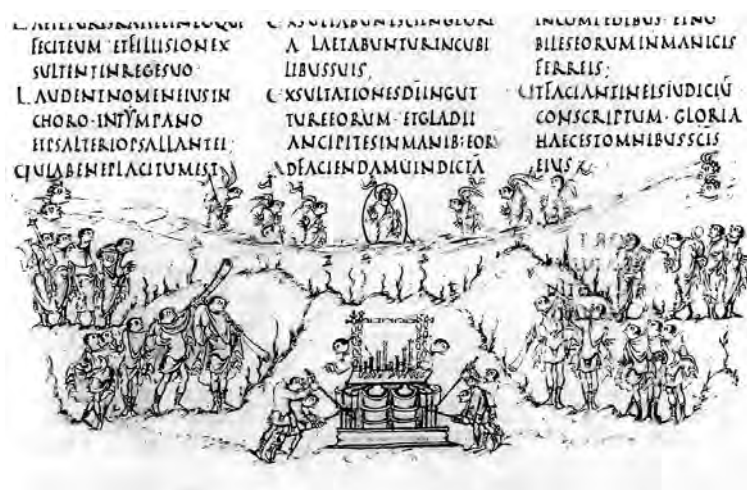 LAETETURISRAHELINEOQUI
FECITEUM· ETFILIISIONEX
SULTENTINREGESUO·
LAUDENTNOMENEIUSIN
CHORO·INTYMPANO
ETPSALTERIOPSALLANTEI·
QUIABENEPLACITUMEST
EXSULTABUNTSCIINGLORI
A LAETABUNTURINCUBI
LIBUSSUIS;
EXSULTATIONESDĪINGUT
TUREEORUM·ETGLADII
ANCIPITESINMANIB:EOR
ADFACIENDAMUINDICTĀ
INCOMPEDIBUS·ETNO
BILESEORUMINMANICIS
FERREIS;
UTFACIANTINEISIUDICIŪ
CONSCRIPTUM·GLORIA
HAECESTOMNIBUSSCĪS
EIUS